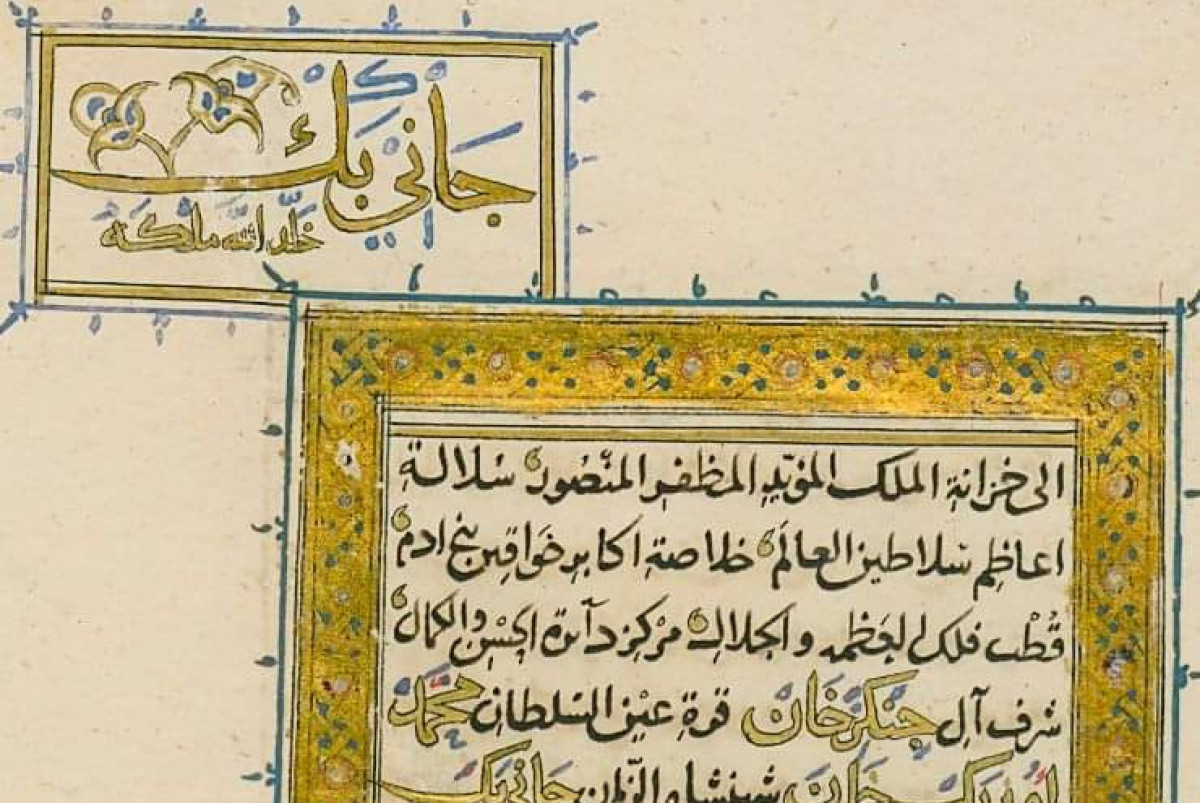 جاني بك
خلد الله ملكه
الى خزانة الملك المؤيد المظفر المنصور سلالة
اعاظم سلاطين العالم خلاصة اكابر خواقين بنى ادم
قطب فلك العظمه والجلال مركز دآئرة الحسن والكمال
شرف آل جنكز خان قرة عين السلطان محمد
اوزبك خان شهنشاه الزمان جاني بك